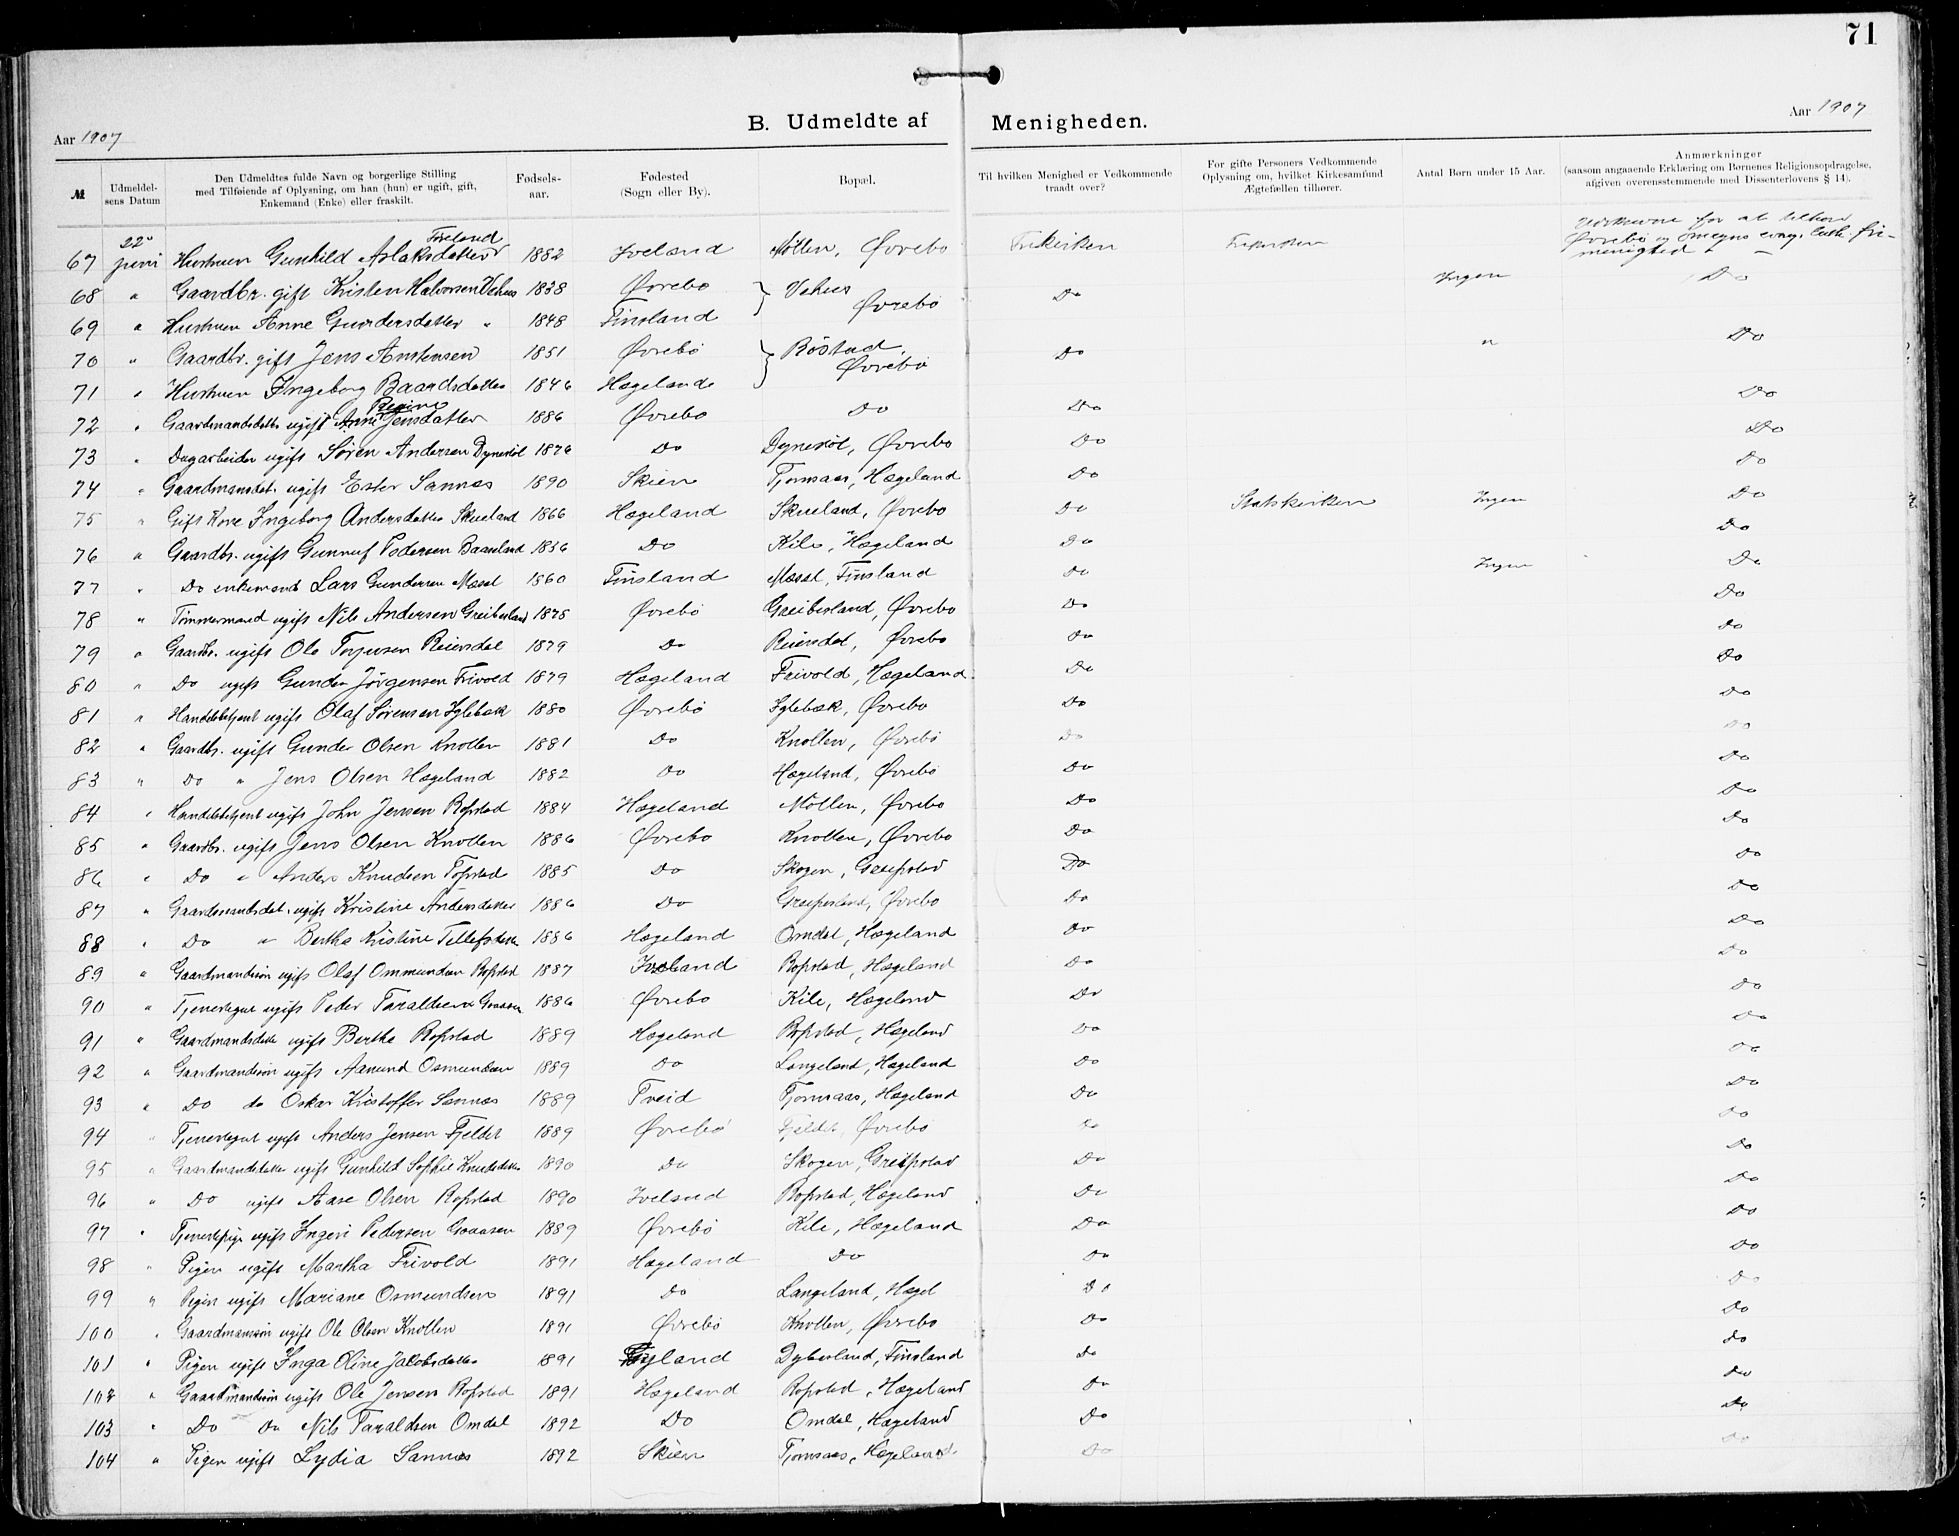 71
Aar 1907
B. Udmeldte af Menigheden.
Aar 1907
№ | Udmeldelsens Datum | Den Udmeldtes fulde Navn og borgerlige Stilling med Tilføiende af Oplysning, om han (hun) er ugift, gift, Enkemand (Enke) eller fraskilt. | Fødselsaar. | Fødested (Sogn eller By). | Bopæl. | Til hvilken Menighed er Vedkommende traadt over? | For gifte Personers Vedkommende Oplysning om, hvilket Kirkesamfund Ægtefællen tilhører. | Antal Børn under 15 Aar. | Anmærkninger (saasom angaaende Erklæring om Børnenes Religionsopdragelse, afgiven overensstemmende med Dissenterlovens § 14).
67 22 juni Hustruen Gunhild Aslaksdatter Foreland 1882 Iveland Mollen, Øvrebo Frikirken Frikirken for at tilhøre Øvrebø og omegns evag. luth. frimenighed
68 " Gaardbr. gift Kristen Halvorsen Vehus 1838 Øvrebo } Vehus Øvrebö Do Ingen Do
69 " Hustruen Anne Gundersdatter " 1848 Finsland
70 " Gaardbr. gift Jens Anstensen 1851 Øvrebö } Röstad, Øvrebö Do " Do
71 " Hustruen Ingeborg Baardsdatter 1846 Hægeland
72 " Gaardmandsdatter ugift Anne Regine Jensdatter 1886 Øvrebo Do Do Do
73 " Dagarbeider ugift Søren Andersen Dynestöl 1876 Do Dynestöl, Øvrebo Do Do
74 " Gaardmandsdat. ugift Ester Sannes 1890 Skien Tjomsaas, Hægeland Do Do
75 " Gift Kone Ingeborg Andersdatter Skueland 1866 Hægeland Skueland, Øvrebo Do Statskirken Ingen Do
76 " Gaardbr. ugift Gunnuf Pedersen Baaseland 1836 Do Kile, Hægeland Do Do
77 " Do enkemand Lars Gundersen Mæsel 1860 Finsland Mæsel, Finsland Do Ingen Do
78 " Tömmermand ugift Nils Andersen Greibesland 1878 Øvrebö Greibesland, Øvrebo Do Do
79 " Gaardbr. ugift Ole Torjusen Reiersdal 1879 Do Reiersdal, Øvrebo Do Do
80 " Do ugift Gunder Jörgensen Frivold 1879 Hægeland Frivold, Hægeland Do Do
81 " Handelsbetjent ugift Olaf Sörensen Iglebæk 1880 Øvrebö Iglebæk, Øvrebo Do Do
82 " Gaardbr. ugift Gunder Olsen Knollen 1881 Do Knollen, Øvrebö Do Do
83 " Do " Jens Olsen Hægeland 1882 Do Hægeland, Øvrebö Do Do
84 " Handelsbetjent ugift John Jensen Ropstad 1884 Hægeland Möllen, Øvrebo Do Do
85 " Gaardbr. ugift Jens Olsen Knollen 1886 Øvrebo Knollen, Øvrebo Do Do
86 " Do " Anders Knudsen Topstad 1885 Do Skogen, Greipstad Do Do
87 " Gaardmandsdat. ugift Kristine Andersdatter 1886 Do Greipesland, Øvrebo Do Do
88 " Do " Bertha Kristine Tellefsdatter 1886 Hægeland Omdal, Hægeland Do Do
89 " Gaardmandssön ugift Olaf Ommundsen Ropstad 1887 Iveland Ropstad, Hægeland Do Do
90 " Tjenestegut ugift Peder Taraldsen Graasen 1886 Øvrebo Kile, Hægeland Do Do
91 " Gaardmandsdatt ugift Bertha Ropstad 1889 Hægeland Ropstad, Hægeland Do Do
92 " Gaardmandssön ugift Aanund Osmundsen 1889 Do Langeland, Hægeland Do Do
93 " Do do Oskar Kristoffer Sannes 1889 Tveid Tjomsaas, Hægeland Do Do
94 " Tjenestegut ugift Anders Jensen Fjeldet 1889 Øvrebö Fjeldet, Øvrebö Do Do
95 " Gaardmandsdatter ugift Gunhild Sophie Knudsdatter 1890 Do Skogen, Greipstad Do Do
96 " Do ugift Aase Olsen Ropstad 1890 Iveland Ropstad, Hægeland Do Do
97 " Tjenestepige ugift Ingeri Pedersen Graasen 1889 Øvrebö Kile, Hægeland Do Do
98 " Pigen ugift Martha Frivold 1891 Hægeland Do Do Do
99 " Pigen ugift Mariane Osmundsen 1891 Do Langeland, Hægel Do Do
100 " Gaardmandsön ugift Ole Olsen Knollen 1891 Øvrebö Knollen, Øvrebo Do Do
101 " Pigen ugift Inga Oline Jakobsdatter 1891 Øyland Dybesland, Finsland Do Do
102 " Gaardmandssön ugift Ole Jensen Ropstad 1891 Hægeland Ropstad, Hægeland Do Do
103 " Do Do Nils Taraldsen Omdal 1892 Do Omdal, Hægeland Do Do
104 " Pigen ugift Lydia Sannes 1892 Skien Tjomsaas, Hægeland Do Do